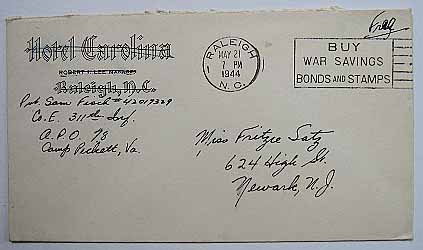 Free
Hotel Carolina
ROBERT I. LEE MANAGER
Raleigh, N.C.
RALEIGH
MAY 21
7 PM
1944
N.C.
BUY
WAR SAVINGS
BONDS AND STAMPS
Pvt. Sam Fisch # 42017329
Co. E. 311th Inf.
A.P.O. 78
Camp Pickett, Va.
Miss Fritzie Satz
624 High St.
Newark, N.J.